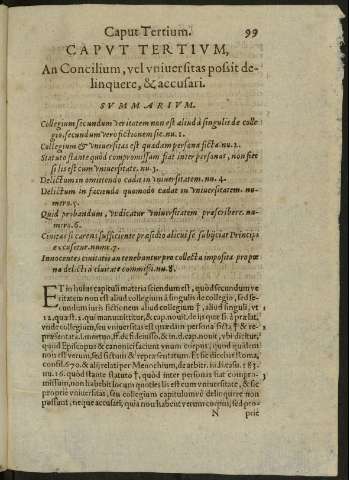 Caput Tertium. 99
CAPVT TERTIVM,
An Concilium, vel vniuersitas possit de-
linquere, & accusari.
SVMMARIVM.
Collegium secundum veritatem non est aliud à singulis de colle
gio, secundum vero fictionem sic. nu. 1.
Collegium & vniuersitas est quædam persona ficta. nu. 2.
Statuto stante quòd compromissum fiat inter personas, non fiet
si lis est cum vniuersitate. nu. 3.
Delictum in omittendo cadat in vniuersitatem. nu. 4.
Delictum in faciendo quomodo cadat in vniuersitatem. nu-
mero. 5.
Quid probandum, vt dicatur vniuersitatem præscribere. nu-
mero. 6.
Ciuitas si carens sufficiente præsidio alicui se subijciat Principi
excusetur. nume. 7.
Innocentes ciuitatis an tenebuntur pro collecta imposita propter
na delicti à ciuitate commissi. nu. 8.
ET in huius capituli materia sciendum est, quòd secundum ve
ritatem non est aliud collegium à singulis de collegio, sed se-
cundum iuris fictionem aliud collegium †, aliud singuli, vt
12. quæst. 2. qui manumittitur, & cap. nouit. de ijs quæ fi. à prælat.
vnde collegium, seu vniuersitas est quædam persona ficta † & re-
præsentata. l. mortuo. ff. de fideiusso. & in d. cap. nouit, vbi dicitur,
quòd Episcopus & canonici faciunt vnum corpus, quod quidem
non est verum, sed fictum & repræsentatum. Et sic dicebat Roma.
consi. 670. & alij relati per Menochium, de arbitr. iudi. casu. 183.
nu. 16. quòd stante statuto †, quòd inter personas fiat compro-
missum, non habebit locum quoties lis est cum vniuersitate, & sic
propriè vniuersitas, seu collegium capitulum vè delinquere non
possunt, neque accusari, quia non habent verum corpus, sed pro-
N prie